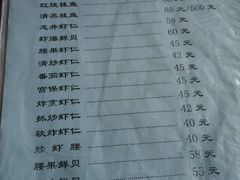 红烧桂鱼
清蒸桂鱼 88元/500克
龙井虾仁 58 元
虾爆鲜贝 60 元
腰果虾仁 45 元
清炒虾仁 42 元
番茄虾仁 45 元
宫保虾仁 45 元
炸烹虾仁 42 元
抓炒虾仁 40 元
软炸虾仁 40 元
炒虾腰 40 元
腰果鲜贝 58 元
55 元